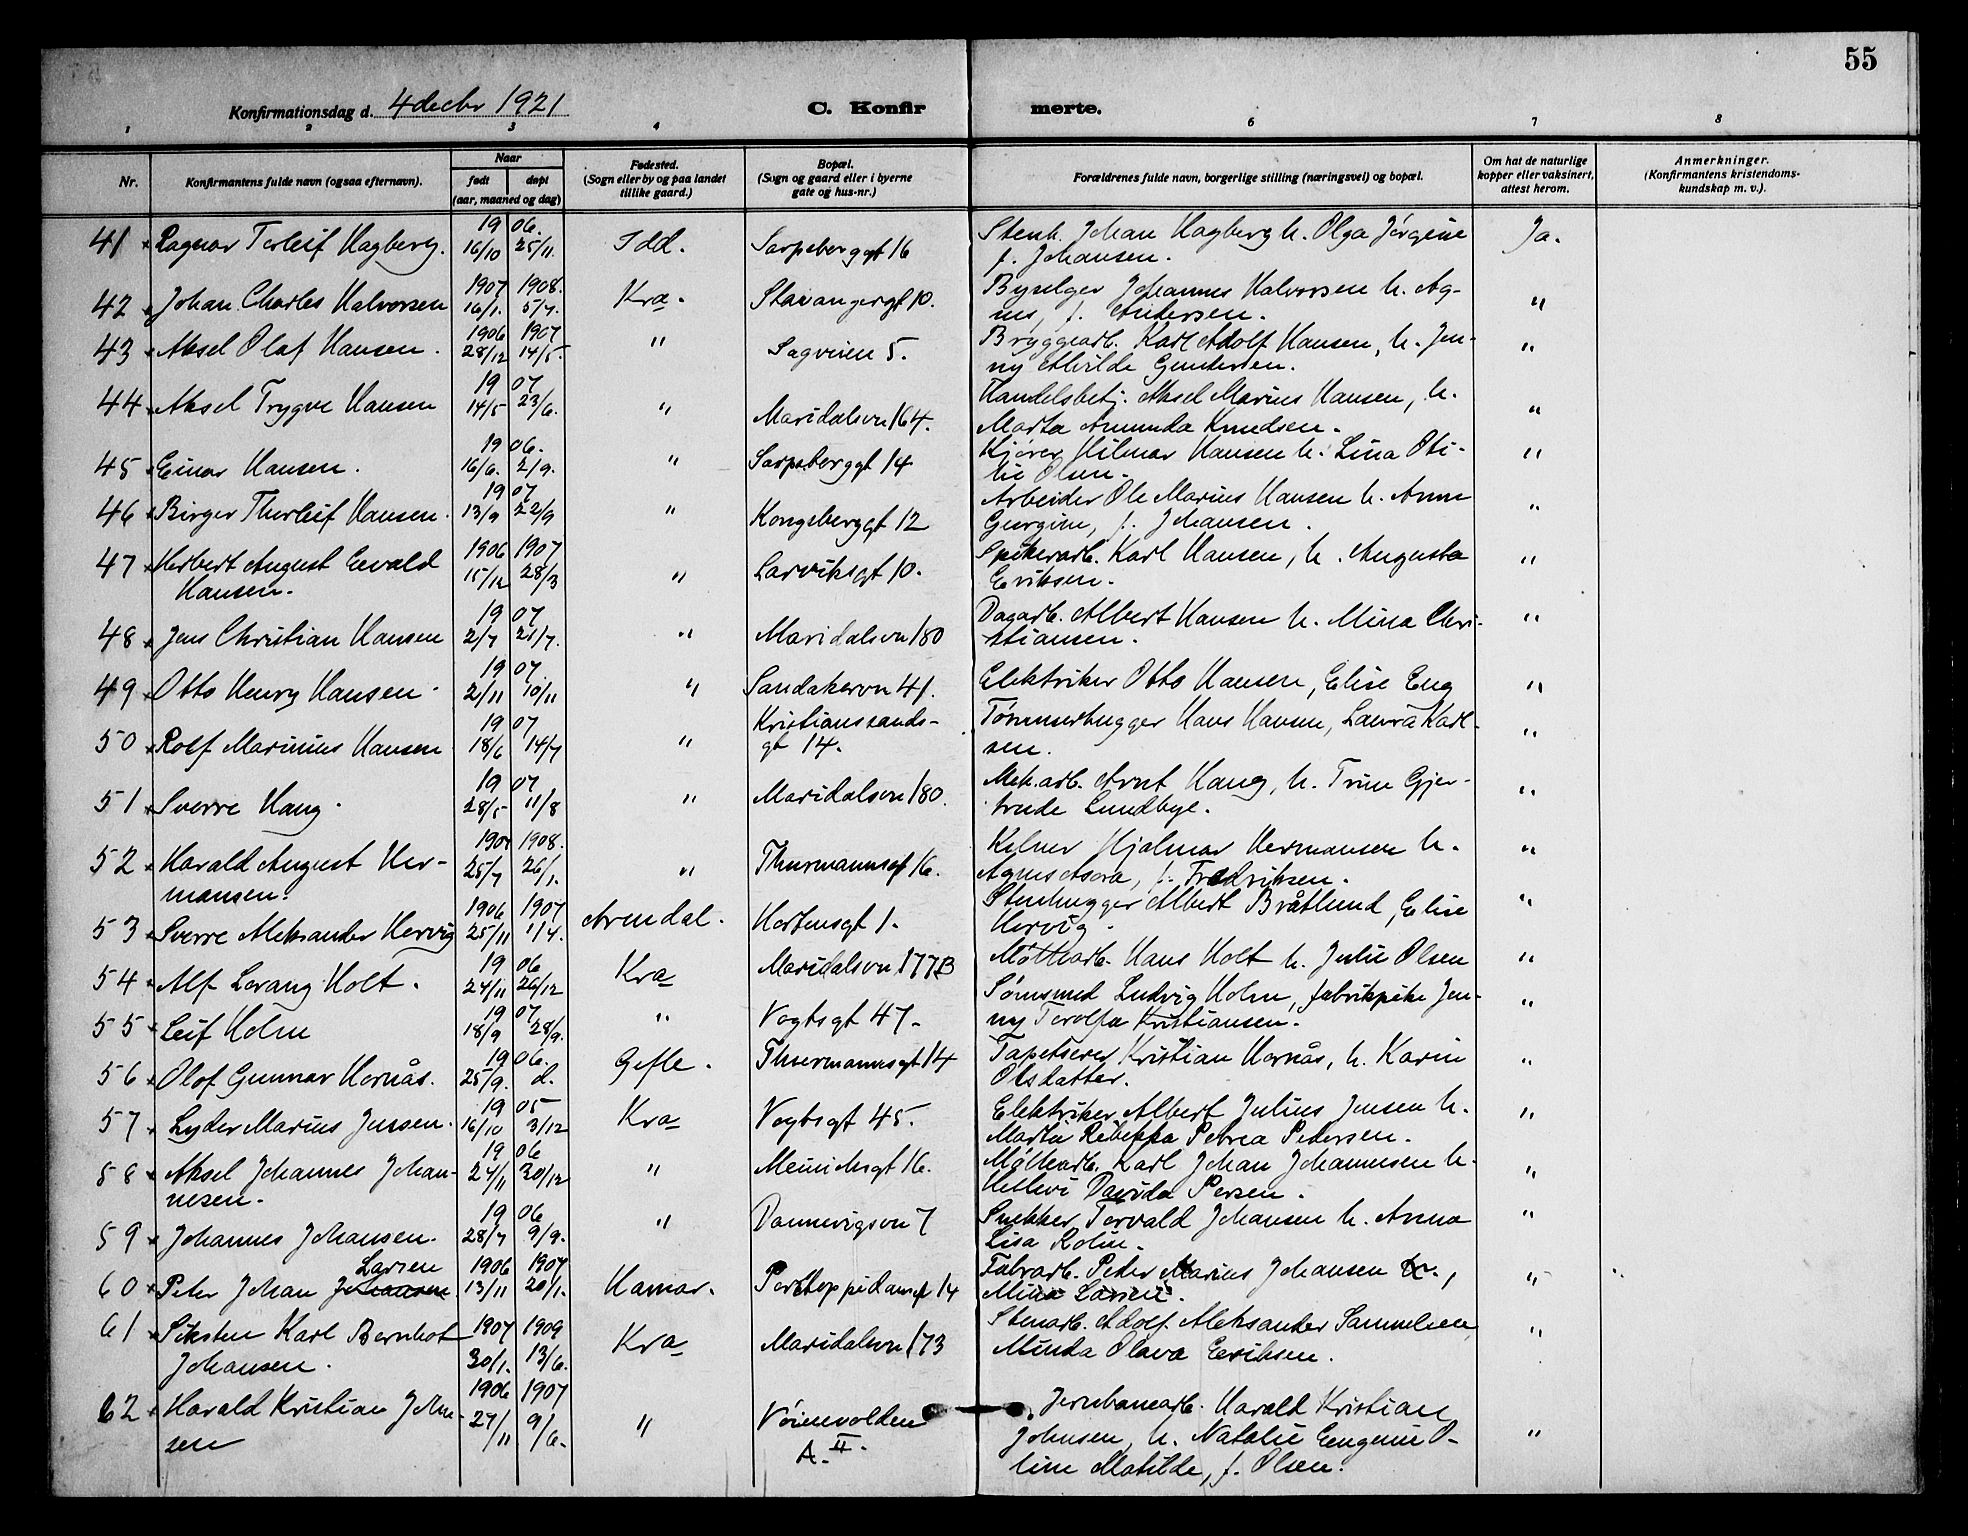 55
Konfirmationsdag d. 4 decbr 1921
C. Konfir merte.
1 2 3 4 6 7 8
Nr.
Konfirmantens fulde navn (ogsaa efternavn).
Naar
født døpt
(aar, maaned og dag)
Fødested.
(Sogn eller by og paa landet
tillike gaard.)
Bopæl.
(Sogn og gaard eller i byerne
gate og hus-nr.)
Forældrenes fulde navn, borgerlige stilling (næringsvei) og bopæl.
Om hat de naturlige
kopper eller vaksinert,
attest herom.
Anmerkninger.
(Konfirmantens kristendoms-
kundskap m. v.).
41 Ragnar Torleif Hagberg. 1906. 16/10 25/11. Idd. Sarpsborggt 16 Stenh. Johan Hagberg h. Olga Jørgine Ja.
f. Johansen.
42 Johan Charles Halvorsen 1907 16/1. 1908. 5/7. Kra. Stavangergt 10. Johannes Halvorsen h. Ag- "
nes, f. Andersen.
43 Aksel Olaf Hansen. 1906 28/12 1907 14/5. " Sagveien 5. Bryggearb. Karl Adolf Hansen, h. Jen- "
ny Alvilde Gundersen.
44 Aksel Trygve Hansen 1907 14/5 23/6. " Maridalsvn 164. Handelsbetj. Aksel Marius Hansen, h. "
Marta Amunda Knudsen.
45 Einar Hansen. 1906. 16/6. 2/9. " Sarpsborggt 14 Kjører Hilmar Hansen h. Lina Oti- "
lie Olsen.
46 Birger Thorleif Hansen. 1907 13/9 22/9 " Kongsberggt 12 Arbeider Ole Marius Hansen h. Anne "
Georgine, f. Johansen.
47 Herbert August Evald 1906 15/12 1907 28/3 " Larviksgt 10. Spikerarb. Karl Hansen, h. Augusta "
Hansen. Eriksen.
48 Jens Christian Hansen 1907 2/7 21/7. " Maridalsvn 180 Dagarb. Albert Hansen h. Mina Chri- "
stiansen.
49 Otto Henry Hansen. 1907 2/11 10/11 " Sandakervn 41. Elektriker Otto Hansen, Elise Eng "
50 Rolf Marinius Hansen 1907 18/6 14/7 " Kristianssands- Tømmerhugger Hans Hansen, Laura Karl- "
gt 14. sen.
51 Sverre Haug. 1907 28/5 11/8 " Maridalsvn 180. Mek.arb. Arnt Haug, h. Trine Gjer- "
trude Lundbye.
52 Harald August Her- 25/7 1908. 26/1. " Thurmannsgt 16. Kelner Hjalmar Hermansen h. "
mansen. Agnes Asora, f. Fredriksen.
53 Sverre Aleksander Hervig 1906 25/11 1907 1/4. Arendal. Hortensgt 1. Stenhugger Albert Bråtlund, Elise "
Hervig.
54 Alf Lorang Holt. 1906 24/11 26/12 Kra Maridalsvn 177B Møllearb. Hans Holt h. Julie Olsen "
55 Leif Holm 1907 18/9 28/9. " Vogtsgt 47. Sømsmed Ludvig Holm, fabrikpike Jen- "
ny Torolfa Kristiansen.
56 Olof Gunnar Hornås. 1906. 25/9. d. Gefle. Thurmannsgt 14 Tapetserer Kristian Hornås, h. Karin "
Olsdatter.
57 Lyder Marius Jensen. 1905 16/10 3/12 Kra Vogtsgt 45. Elektriker Albert Julius Jensen h. "
Martie Rebekka Petrea Petersen.
58 Aksel Johannes Johan- 1906 24/11 30/12 " Meinichsgt 16. Møllearb. Karl Johan Johannesen h. "
nesen. Hellevi Davida Persen.
59 Johannes Johansen. 1906 28/7 9/9. " Dannevigsvn 7 Snekker Torvald Johansen h. Anna "
Lisa Rolin.
Larsen
60 Peter Johan Johansen. 1906 13/11 1907 20/1. Hamar. Pontoppidansgt 14 Fabrarb. Peder Marius Johansen &., "
Mina Larsen.
61 Siksten Karl Bernhot 1907 30/1. 1909 13/6. Kra Maridalsvn 173 Stenarb. Adolf Aleksander Samuelsen "
Johansen. Minda Olava Eriksen.
62 Harald Kristian John- 1906 27/11 1907 9/6. " Vøienvolden Jernbanearb. Harald Kristian
sen A. II. Johnsen, h. Natalie Eugenie O- "
line Matilde, f. Olsen.